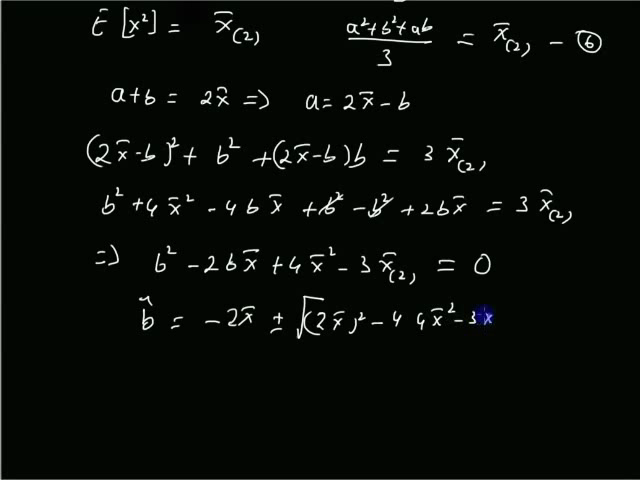 E [x²] = x̄₍₂₎   (a²+b²+ab)/3 = x̄₍₂₎ — ⑥
a+b = 2x̄ => a = 2x̄ - b
(2x̄-b)² + b² + (2x̄-b)b = 3 x̄₍₂₎
b² + 4x̄² - 4bx̄ + b² - b² + 2bx̄ = 3 x̄₍₂₎
=> b² - 2bx̄ + 4x̄² - 3x̄₍₂₎ = 0
b̂ = -2x̄ ± √(2x̄)² - 4 4x̄² - 3x